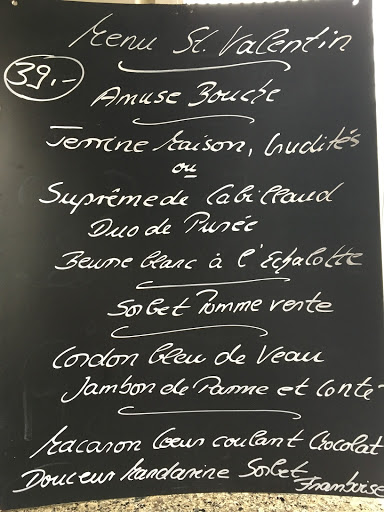 Menu St. Valentin
39.-
Amuse Bouche
Terrine Maison, Crudités
ou
Suprême de Cabillaud
Duo de Purée
Beurre blanc à l'Echalotte
Sorbet Pomme verte
Cordon bleu de Veau
Jambon de Parme et Comté
Macaron Coeur coulant Chocolat
Douceur Mandarine Sorbet Framboise